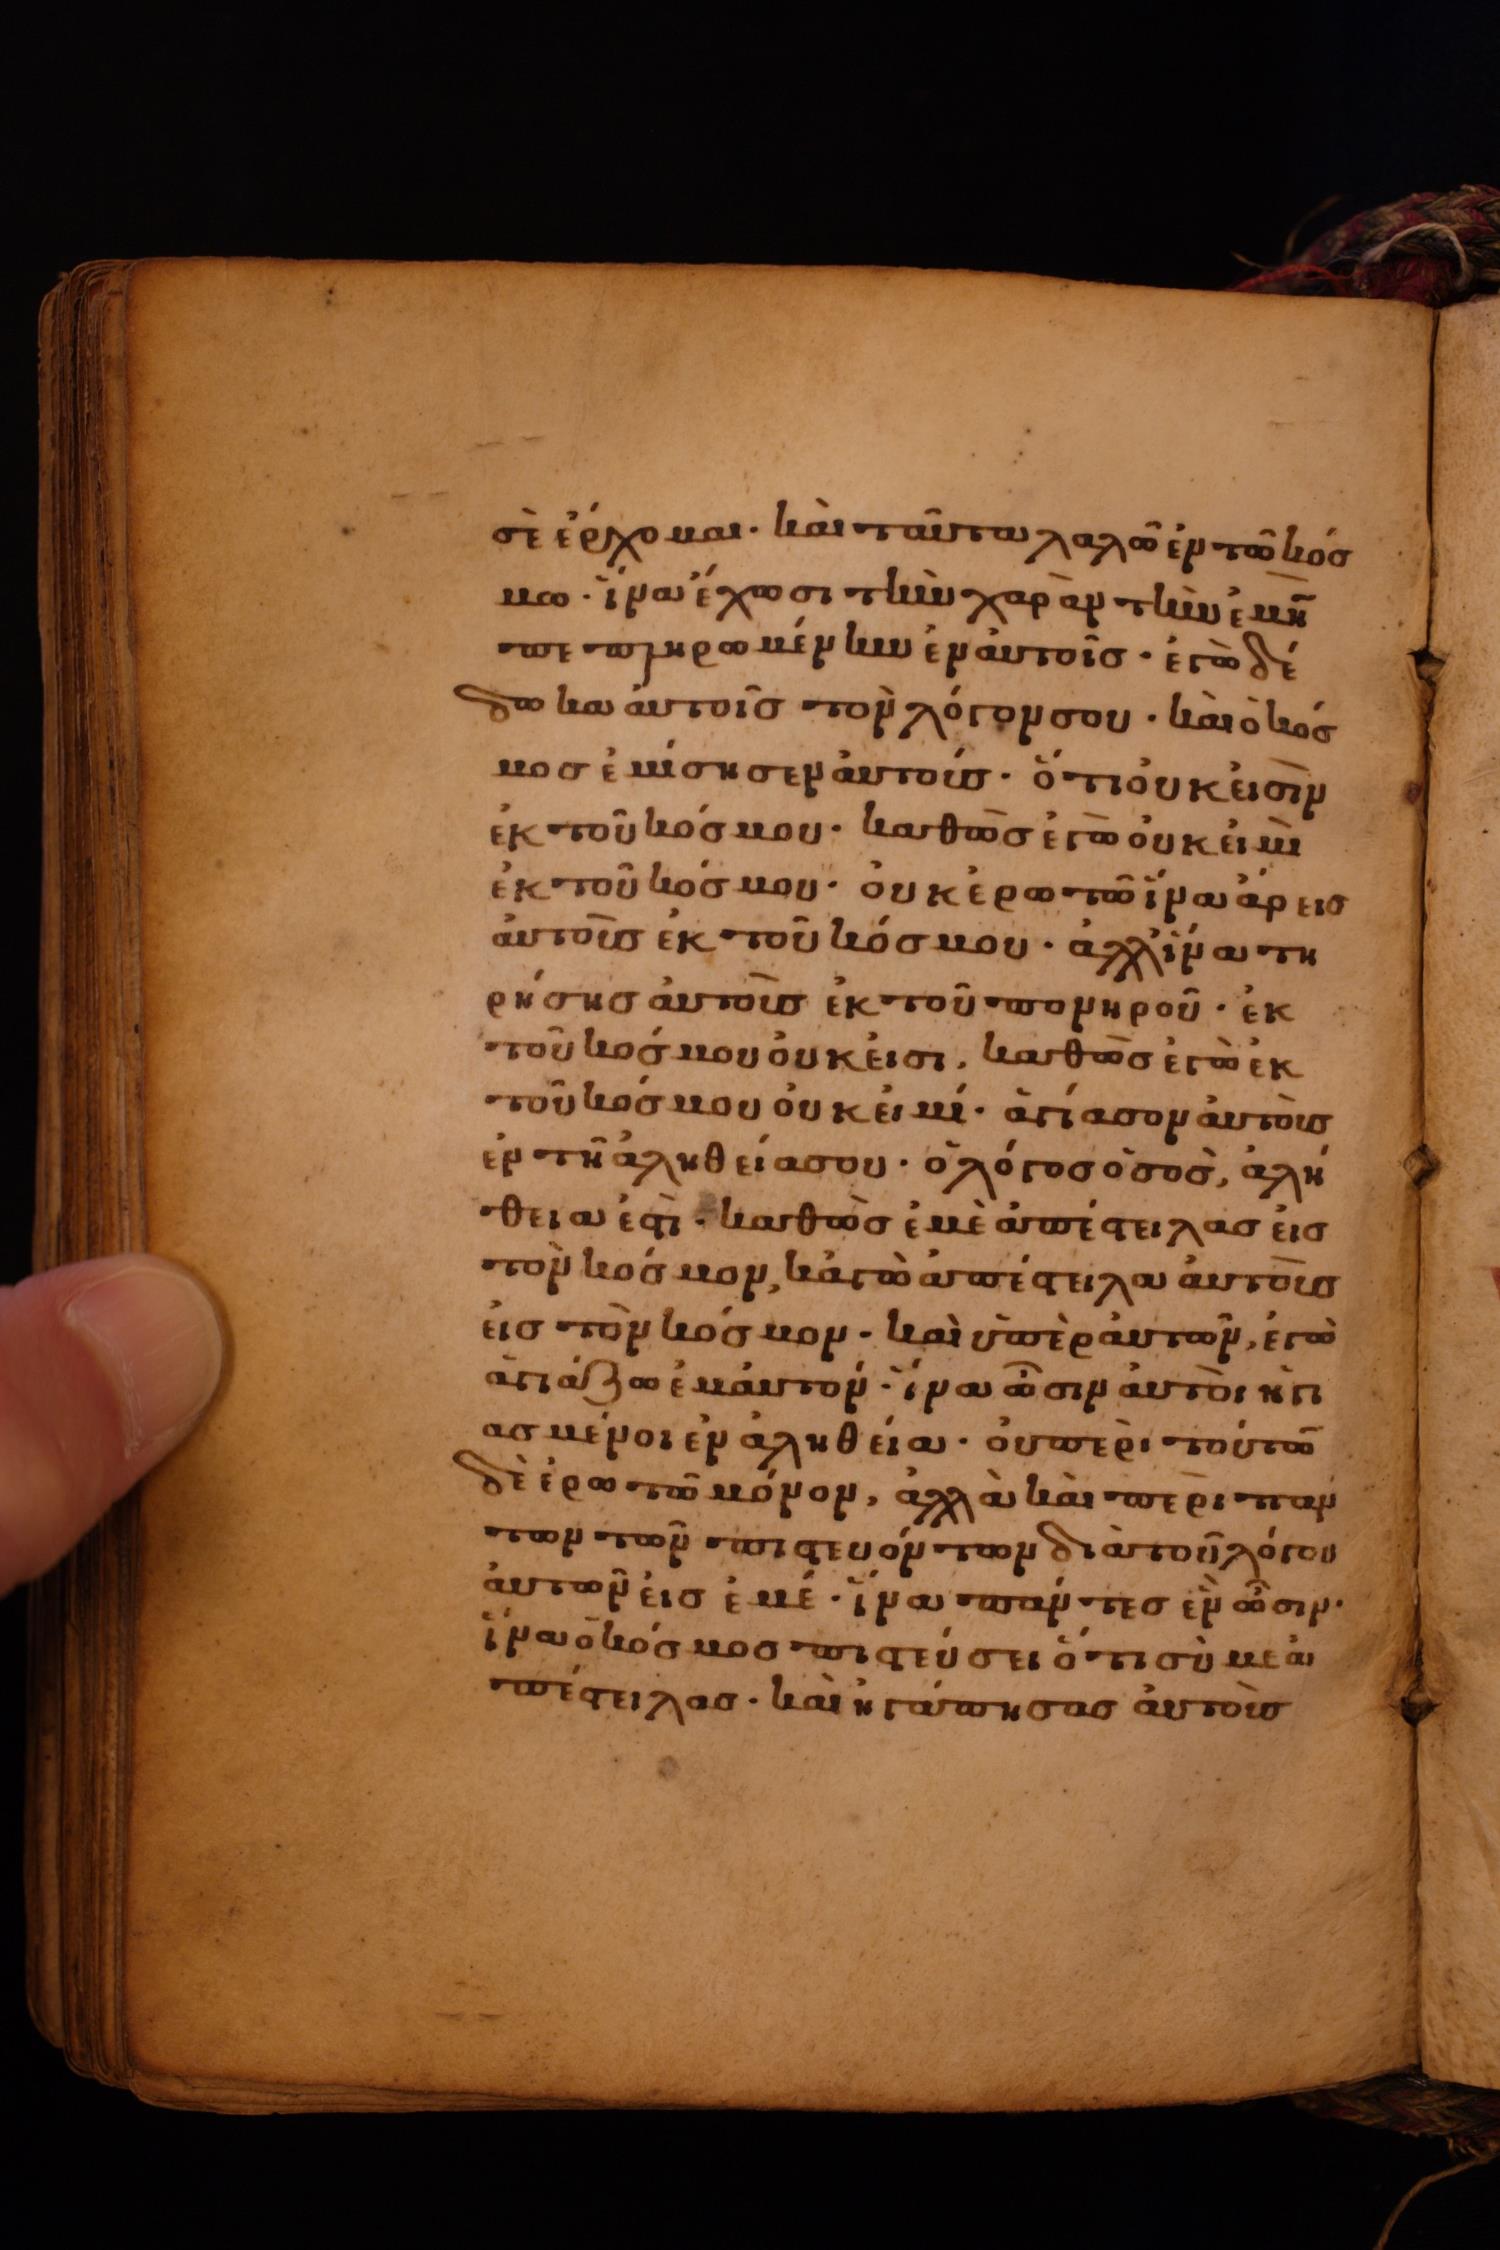 σὲ ἔρχομαι· καὶ ταῦτα λαλῶ ἐν τῶ κόσ
μω· ἵνα ἔχωσι τὴν χαρὰν τὴν ἐμὴ̄
πεπληρωμένην ἐν αὐτοῖς· ἐγὼ δέ
δωκα αὐτοῖς τὸν λόγον σου· καὶ ὁ κόσ
μος ἐμίσησεν αὐτούς· ὅτι οὐκ εἰσὶν
ἐκ τοῦ κόσμου· καθὼς ἐγὼ οὐκ εἰμὶ
ἐκ τοῦ κόσμου· οὐκ ἐρωτῶ ἵνα ἄρεις
αὐτοὺς ἐκ τοῦ κόσμου· ἀλλ' ἵνα τη
ρήσης αὐτοὺς ἐκ τοῦ πονηροῦ· ἐκ
τοῦ κόσμου οὐκ εἰσι, καθὼς ἐγὼ ἐκ
τοῦ κόσμου οὐκ εἰμί· ἁγίασον αὐτοὺς
ἐν τῆ ἀληθεία σου· ὁ λόγος ὁ σὸς, ἀλή
θεια ἐστὶ· καθὼς ἐμὲ ἀπέστειλας εἰς
τὸν κόσμον, κἀγὼ ἀπέστειλα αὐτοὺς
εἰς τὸν κόσμον· καὶ ὑπὲρ αὐτῶν, ἐγὼ
ἁγιάζω ἐμαυτόν· ἵνα ὦσιν αὐτοὶ ἡγι
ασμένοι ἐν ἀληθεία· οὐ περὶ τούτω̄
δὲ ἐρωτῶ μόνον, ἀλλὰ καὶ περὶ παν
των τῶν πιστευόντων διὰ τοῦ λόγου
αὐτῶν εἰς ἐμέ· ἵνα πάντες ἓν ὦσιν·
ἵνα ὁ κόσμος πιστεύσει ὅτι σύ με ἀ
πέστειλας· καὶ ἠγάπησας αὐτοὺς